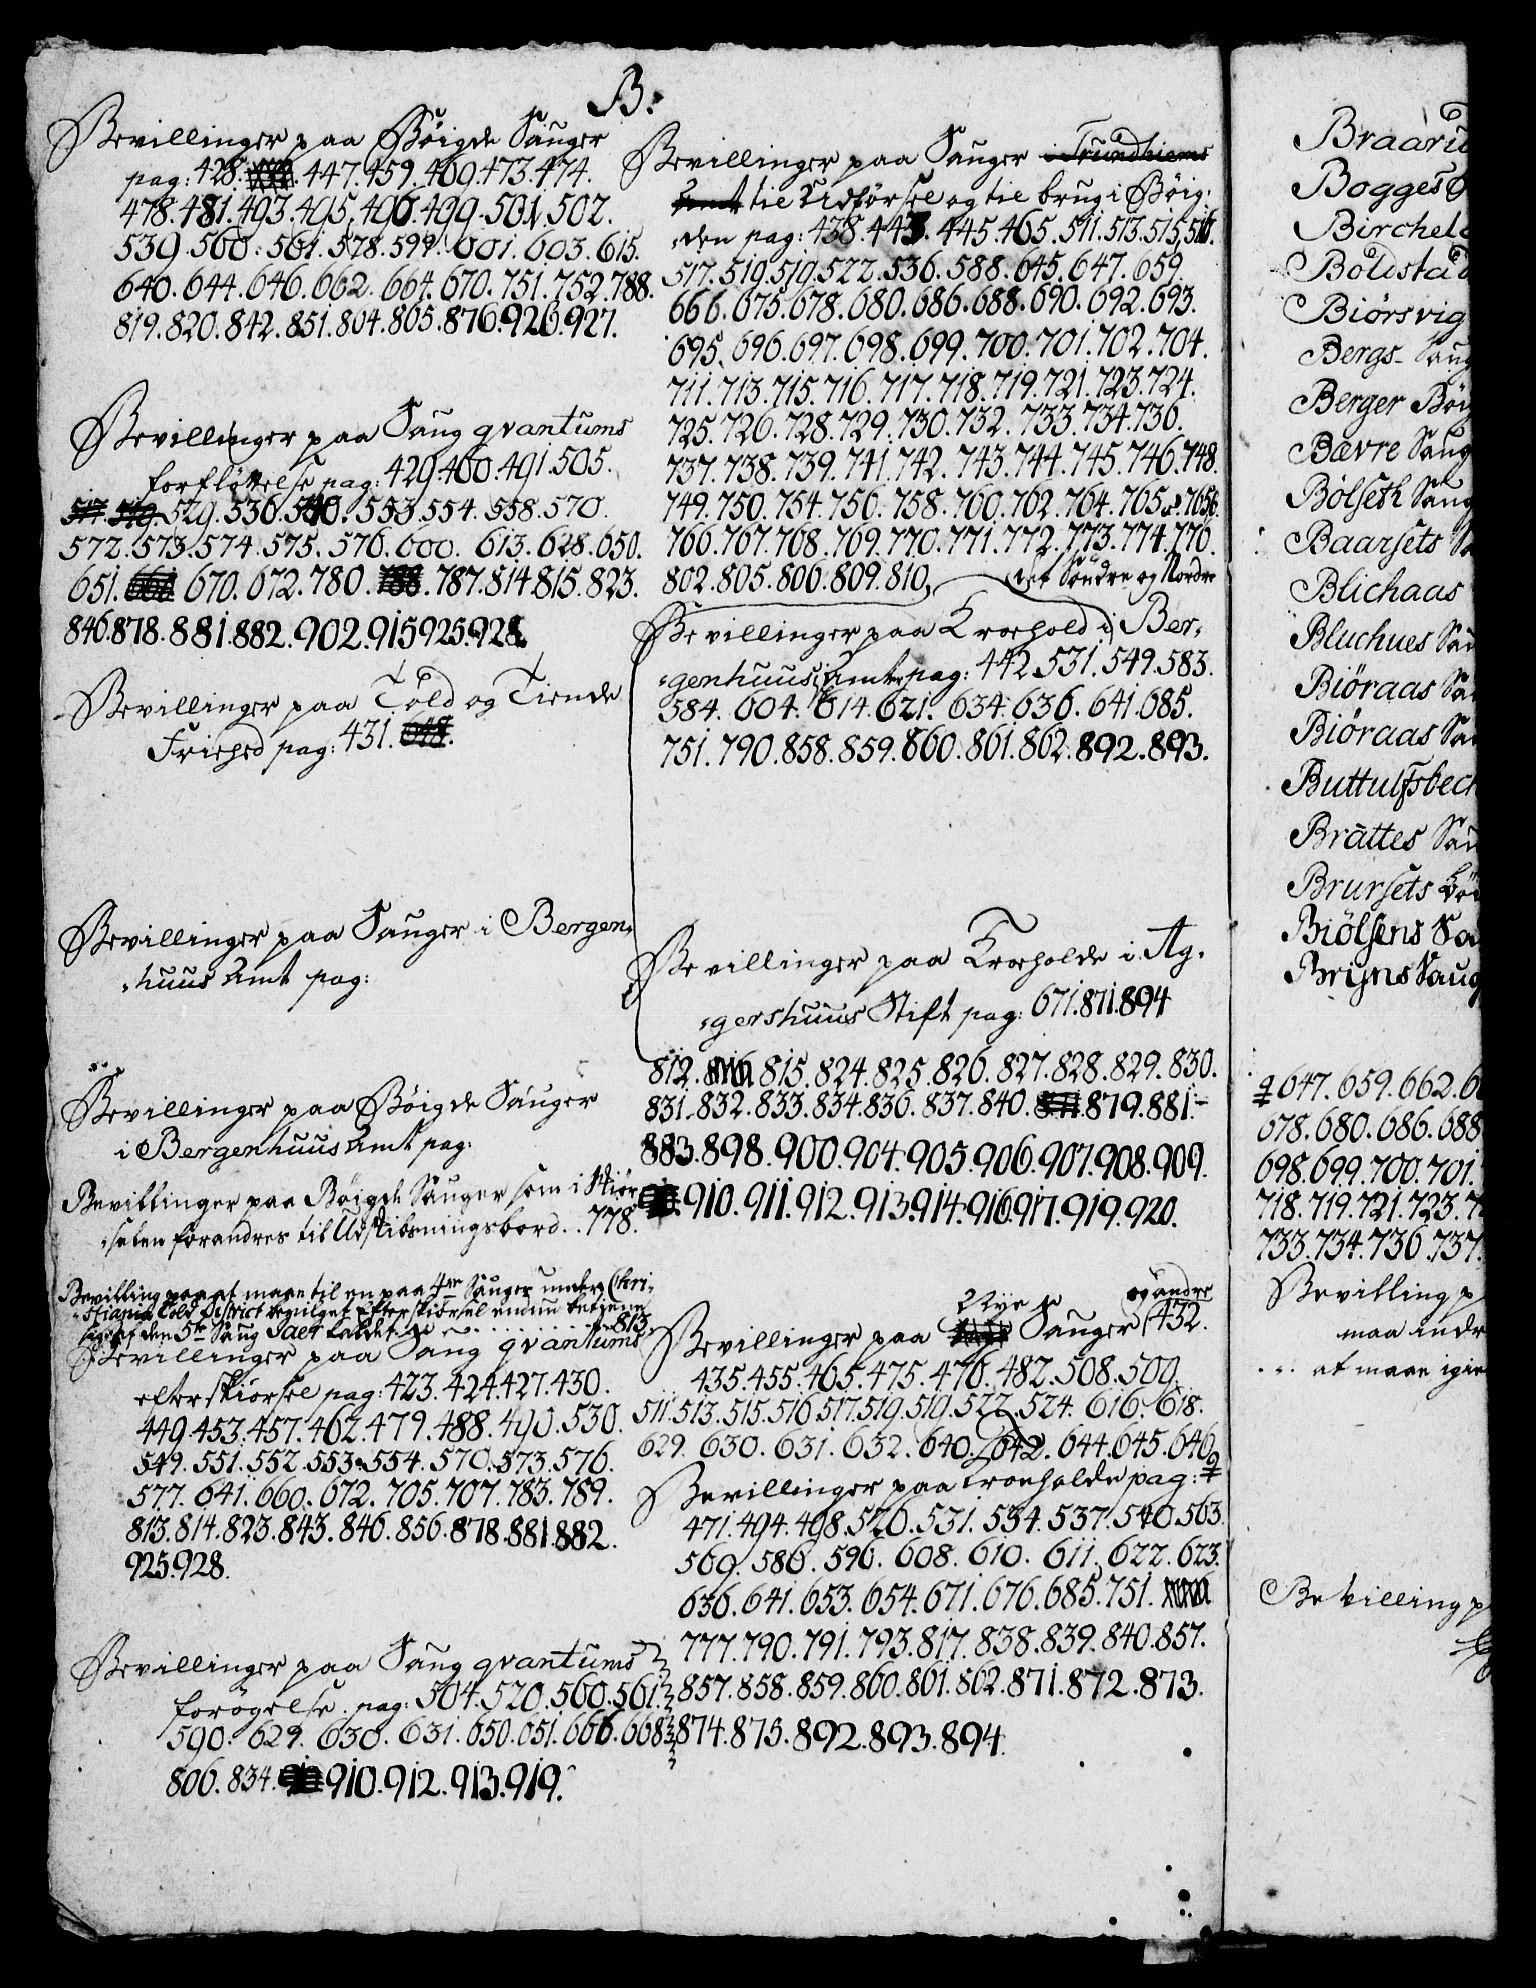 B.
Bevillinger paa Böigde Sauger
pag: 428. 447. 459. 469. 473. 474.
478. 481. 493. 495. 496. 499. 501. 502.
539. 560. 561. 578. 599. 601. 603. 615.
640. 644. 646. 662. 664. 670. 751. 752. 788.
819. 820. 842. 851. 804. 805. 876. 926. 927.
Bevillinger paa Saug qvantums
forfløttelse pag: 429. 460. 491. 505.
517. 519. 529. 536. 540. 553. 554. 558. 570.
572. 573. 574. 575. 576. 600. 613. 628. 650.
651. 670. 672. 780. 787. 814. 815. 823.
846. 878. 881. 882. 902. 915. 925. 928.
Bevillinger paa Told og Tiende
Friehed pag: 431. 648.
Bevillinger paa Sauger i Bergen,
„huus Amt pag:
Bevillinger paa Böigde Sauger
i Bergenhuus Amt pag:
Bevillinger paa Böigde Sauger som i Stiör
„dalen forandres til Udskibningsbord . . 778.
Bevilling paa at maae til en paa 4re Sauger under Chri-
„stiania Told District bevilget Efterskiörsel endnu betiene
sig af den 5te Saug Saet kaldet . . . 813.
Bevillinger paa Saug qvantums
efterskiörsel pag: 423. 424. 427. 430.
449. 453. 457. 462. 479. 488. 490. 530.
549. 551. 552. 553. 554. 570. 573. 576.
577. 641. 660. 672. 705. 707. 783. 789.
813. 814. 823. 843. 846. 856. 878. 881. 882.
925. 928.
Bevillinger paa Saug qvantums
forögelse. pag: 504. 520. 560. 561.
590. 629. 630. 631. 650. 651. 666. 668.
806. 834. 910. 912. 913. 919.
Bevillinger paa Sauger i Trundhiems
Amt til Udförsel og til brug i Böig,
„den pag: 438. 443. 445. 465. 511. 513. 515. 516.
517. 519. 519. 522. 536. 588. 645. 647. 659.
666. 675. 678. 680. 686. 688. 690. 692. 693.
695. 696. 697. 698. 699. 700. 701. 702. 704.
711. 713. 715. 716. 717. 718. 719. 721. 723. 724.
725. 726. 728. 729. 730. 732. 733. 734. 736.
737. 738. 739. 741. 742. 743. 744. 745. 746. 748.
749. 750. 754. 756. 758. 760. 762. 764. 765. 765.
766. 767. 768. 769. 770. 771. 772. 773. 774. 776.
802. 805. 806. 809. 810.
det Söndre og Nordre
Bevillinger paa Kroehold i Ber,
„genhuus Amt pag: 442. 531. 549. 583.
584. 604. 614. 621. 634. 636. 641. 685.
751. 790. 858. 859. 860. 861. 862. 892. 893.
Bevillinger paa Kroeholde i Ag,
„gershuus Stift pag: 671. 871. 894
812. 815. 824. 825. 826. 827. 828. 829. 830.
831. 832. 833. 834. 836. 837. 840. 879. 881.
883. 898. 900. 904. 905. 906. 907. 908. 909.
910. 911. 912. 913. 914. 916. 917. 919. 920.
Nye og andre
Bevillinger paa Sauger 432.
435. 455. 465. 475. 476. 482. 508. 509.
511. 513. 515. 516. 517. 519. 519. 522. 524. 616. 618.
629. 630. 631. 632. 640. 642. 644. 645. 646.
Bevillinger paa Kroeholde pag:
471. 494. 498. 526. 531. 534. 537. 540. 563.
569. 586. 596. 608. 610. 611. 622. 623.
636. 641. 653. 654. 671. 676. 685. 751.
777. 790. 791. 793. 817. 838. 839. 840. 857.
857. 858. 859. 860. 861. 862. 871. 872. 873.
874. 875. 892. 893. 894.
Braaru
Bogges
Birchel
Boldstad
Biörsvig
Bergs- Saug
Berger Böig
Bævre Saug
Bölseth Saug
Baarsets Sa
Blichaas
Bluchues Sau
Biöraas Sau
Biöraas Sau
Buttulfsbech
Brattes Sau
Brursets
Biölsens Sa
Bryns Saug
647. 659. 662. 6
678. 680. 686. 688
698. 699. 700. 701.
718. 719. 721. 723. 7
733. 734. 736. 737.
Bevilling p
maa indr
at maae igie
Bevilling p